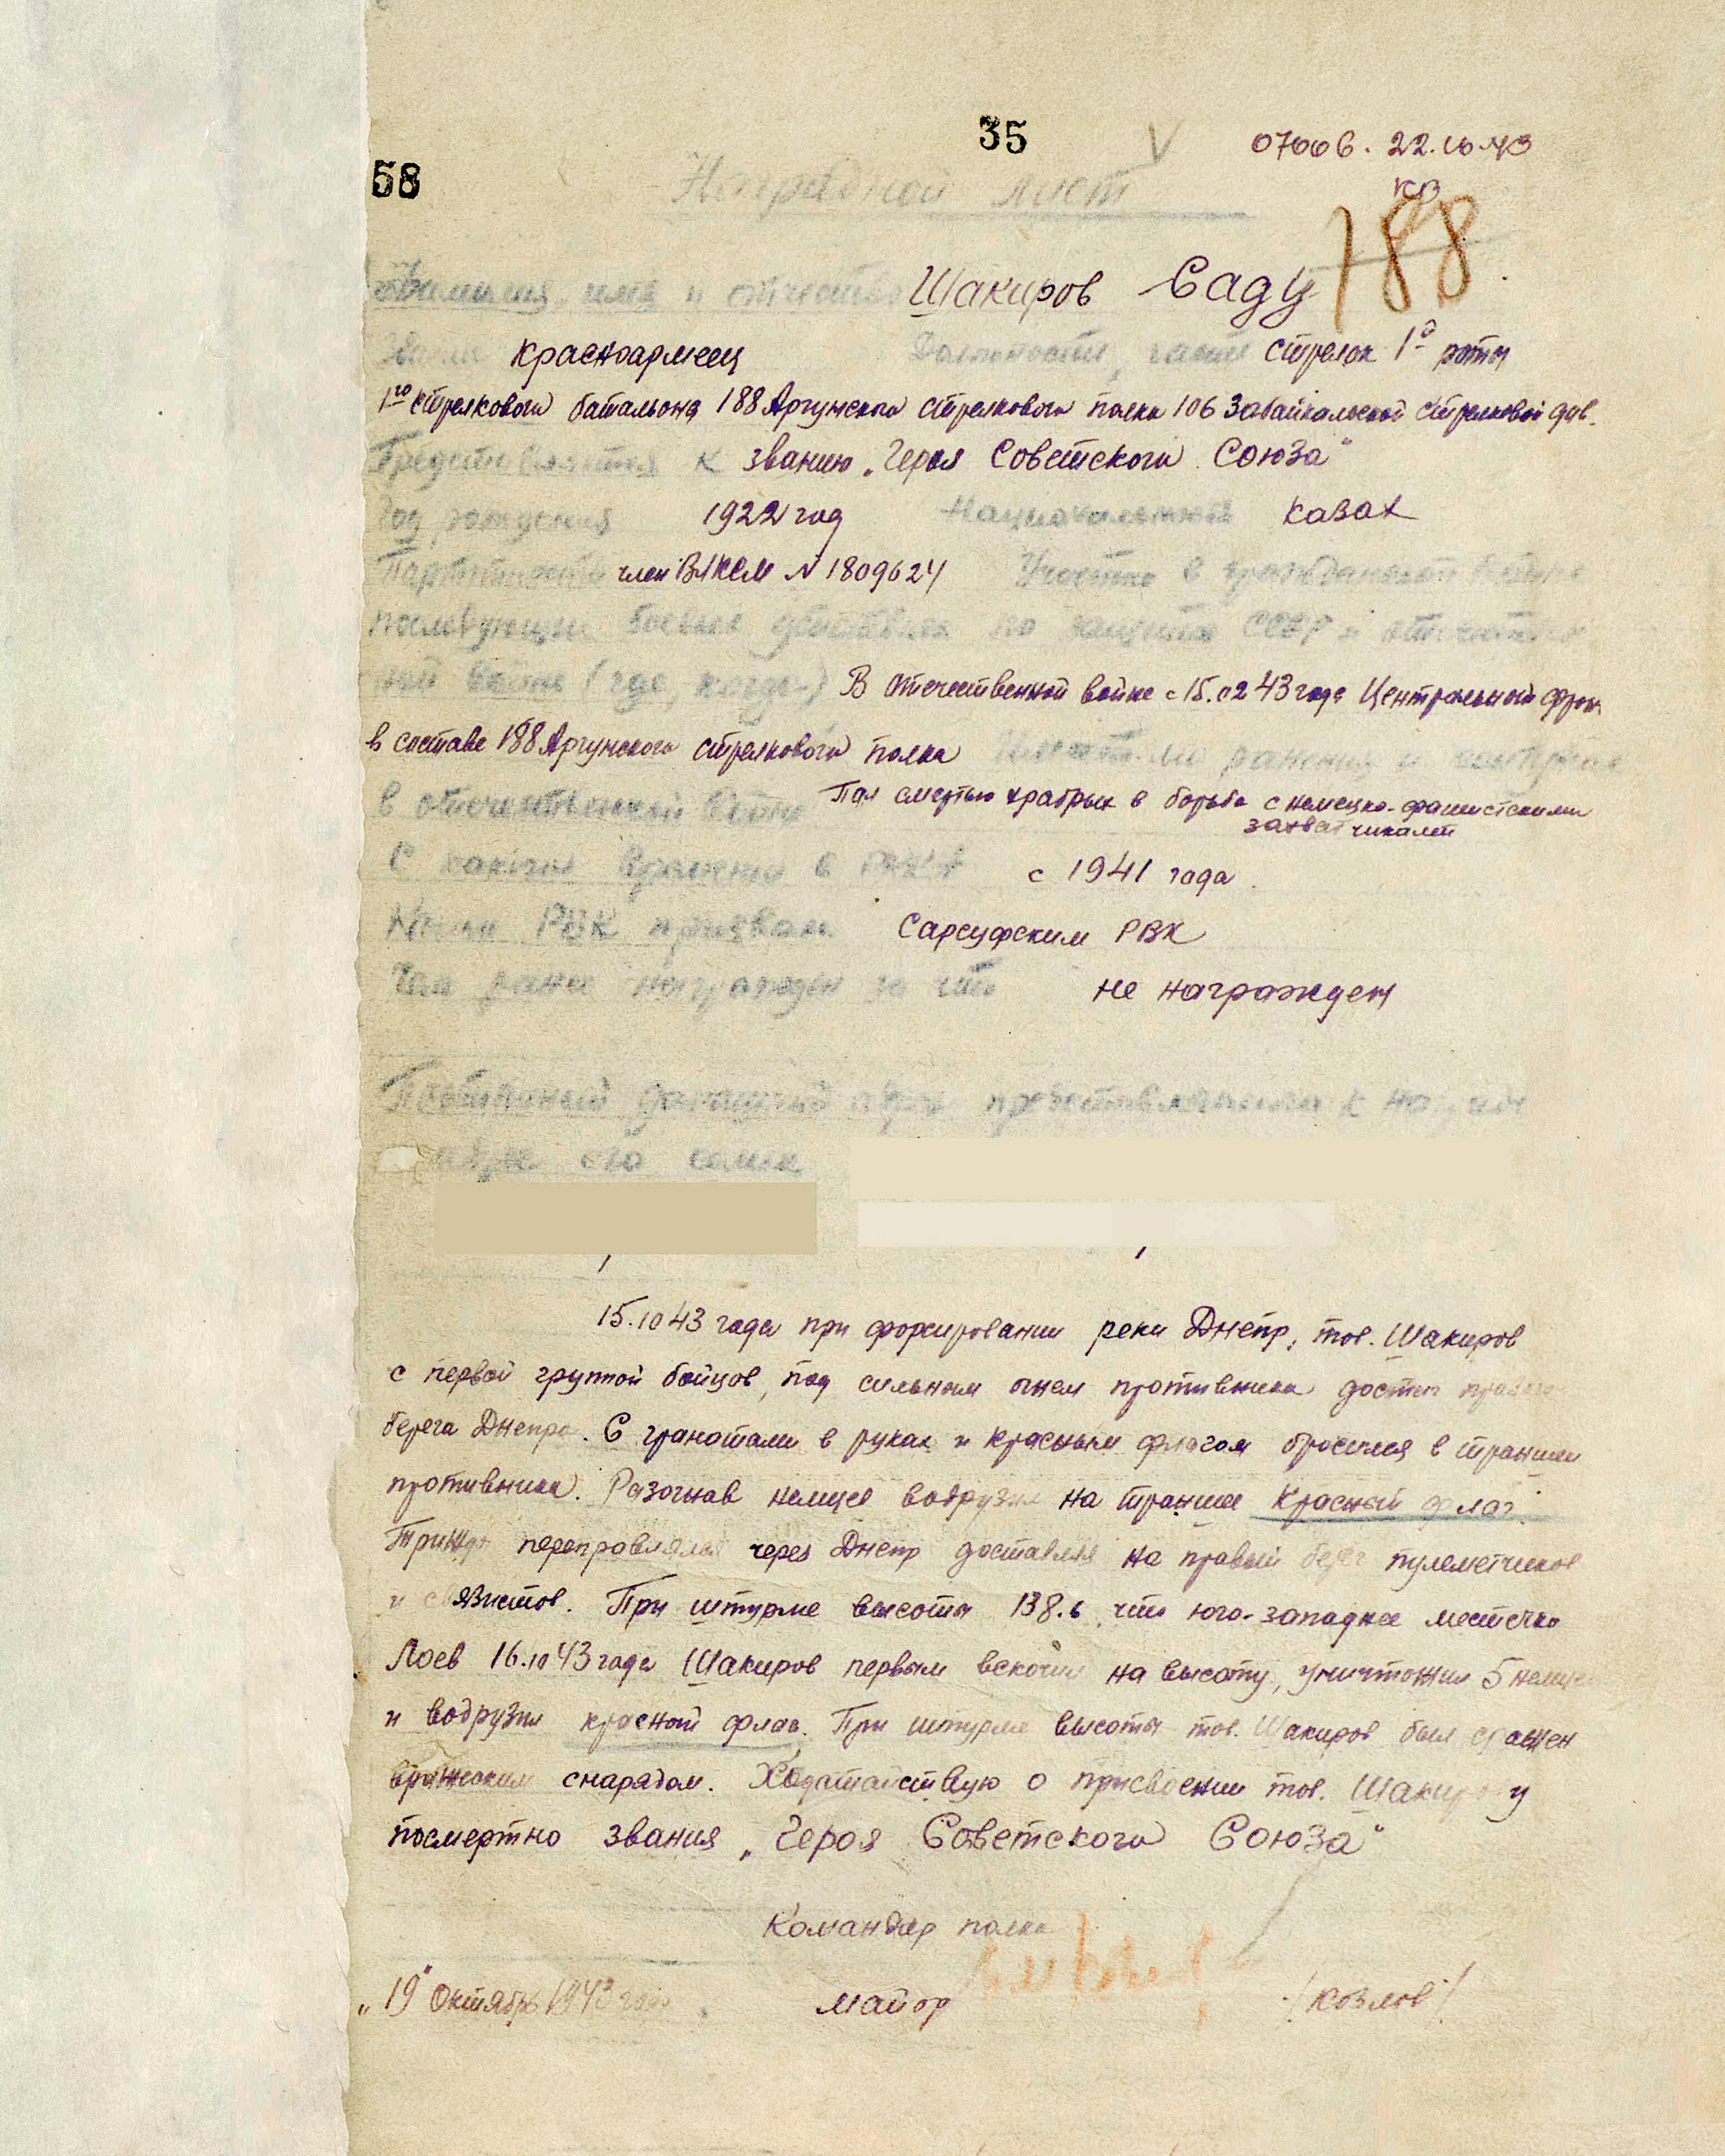 35
58
07006. 22.10.43
КВ
Наградной лист
188
Фамилия, имя и отчество Шакиров Саду
Звание красноармеец Должность, часть стрелок 1й роты
1го стрелкового батальона 188 Аргунского стрелкового полка 106 Забайкальской стрелковой див.
Представляется к званию „Героя Советского Союза"
Год рождения 1922 год Национальность казах
Партийность член ВЛКСМ N 1809624 Участие в гражданской войне
последующие боевые действиях по защите СССР и отечествен
ной войне (где, когда) В отечественной войне с 15.02 43 года Центральный фрон
в составе 188 Аргунского стрелкового полка Имеет ли ранения и контузии
в отечественной войне Пал смертью храбрых в борьбе с немецко-фашистскими
захватчиками
С какого времени в РККА с 1941 года
Каким РВК призван Сарсуфским РВК
Чем ранее награжден за что не награжден
Постоянный домашний адрес представляемого к награде
адрес его семьи
15.10 43 года при форсировании реки Днепр, тов. Шакиров
с первой группой бойцов, под сильным огнем противника достиг правого
берега Днепра. С гранатами в руках и красным флагом бросился в траншеи
противника. Разогнав немцев водрузил на траншее Красный флаг.
Трижды переправлялся через Днепр доставляя на правый берег пулеметчиков
и связистов. При штурме высоты 138.6 что юго-западнее местечка
Лоев 16.10 43 года Шакиров первым вскочил на высоту, уничтожил 5 немцев
и водрузил красный флаг. При штурме высоты тов. Шакиров был сражен
вражеским снарядом. Ходатайствую о присвоении тов. Шакирову
посмертно звания „Героя Советского Союза"
Командир полка
„19" Октября 1943 года майор /Козлов/